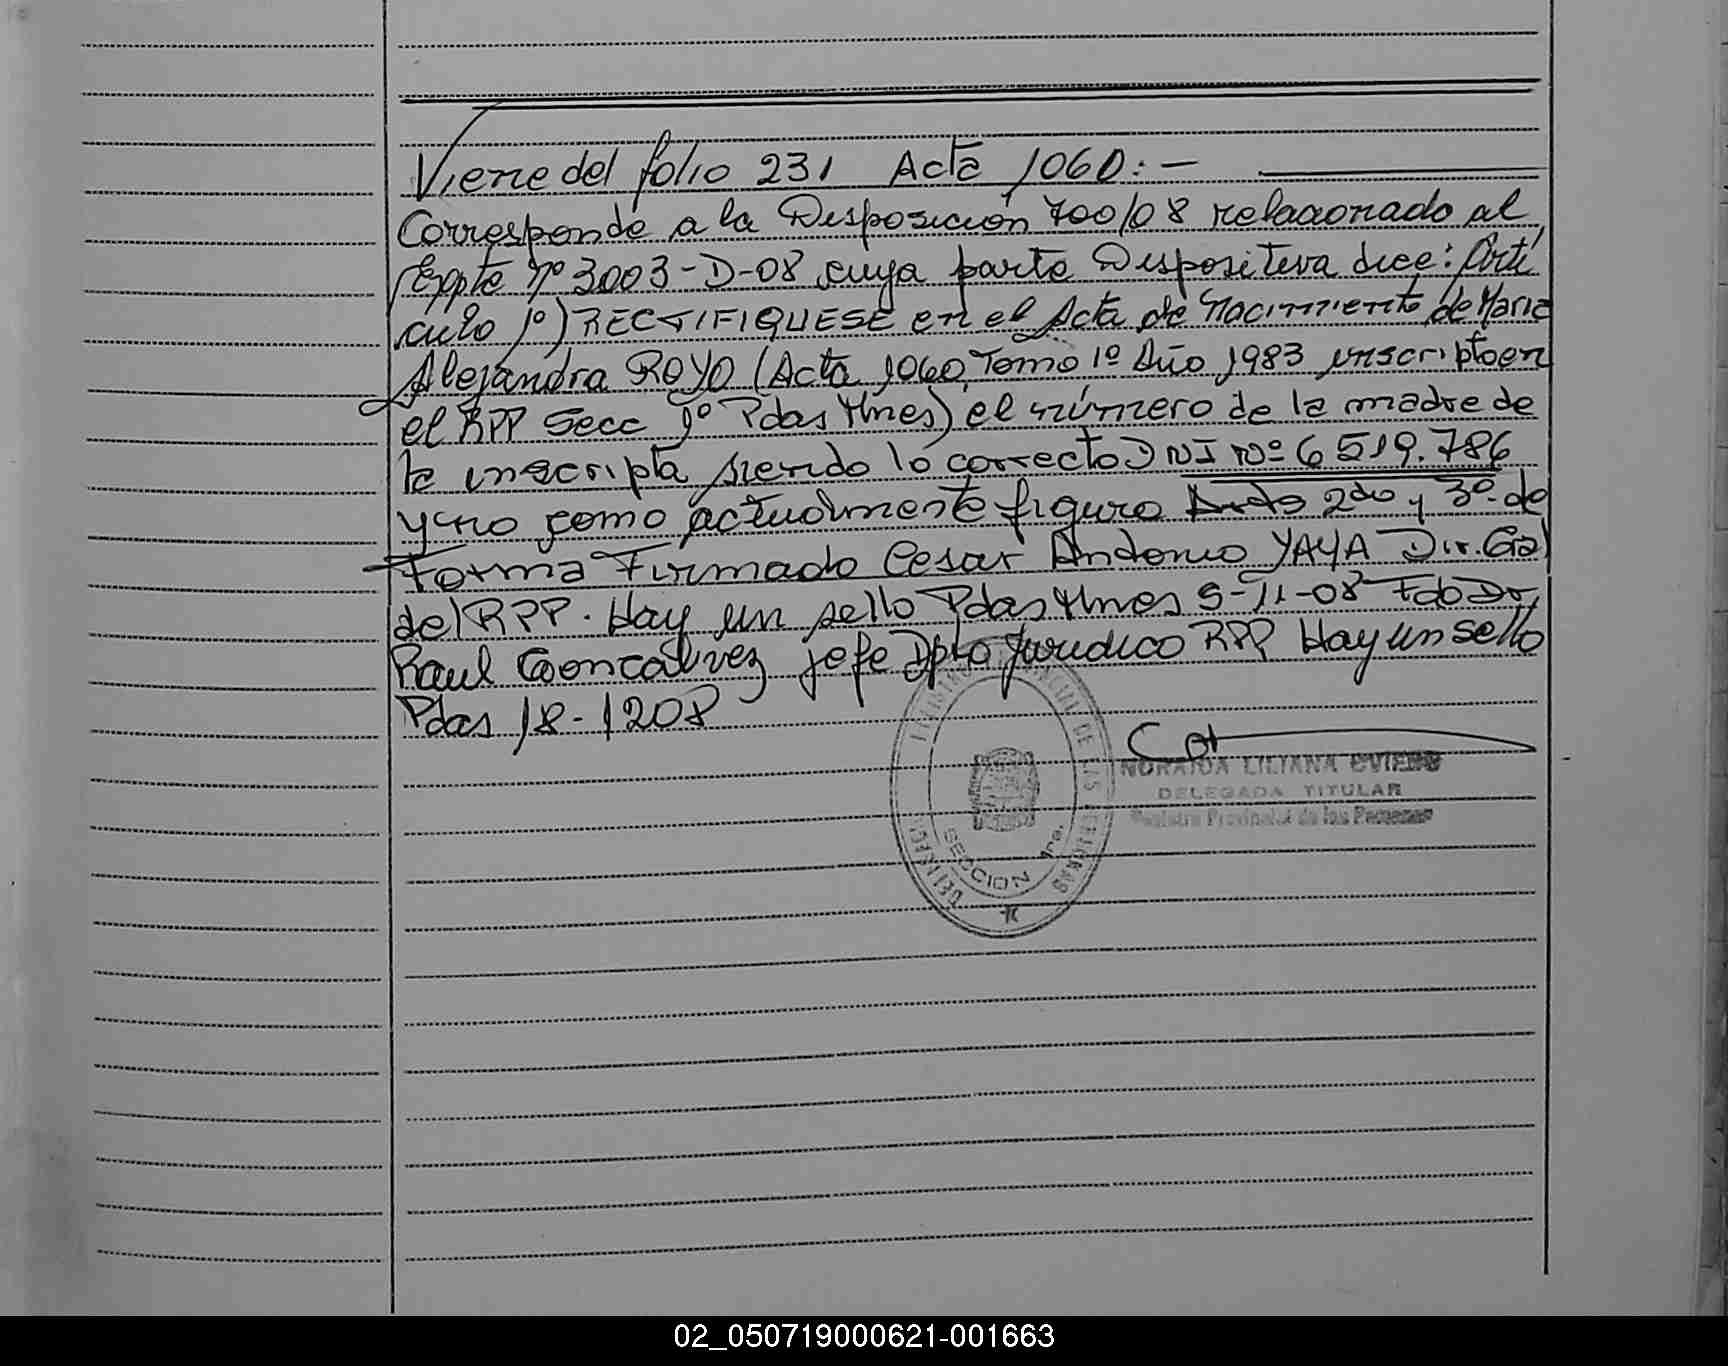 Viene del folio 231 Acta 1060:-
Corresponde a la Disposición 700/08 relacionado al
Expte nº 3003-D-08 cuya parte Dispositiva dice: Artí
culo 1º) RECTIFIQUESE en el Acta de Nacimiento de Maria
Alejandra ROYO (Acta 1060 Tomo 1º Año 1983 inscripto en
el RPP Secc 1º Pdas Mnes) el número de la madre de
la inscripta siendo lo correcto DNI Nº 6 519.786
y no como actualmente figura 2do y 3º de
Forma Firmado Cesar Antonio YAYA Dir. Gral
del RPP. Hay un sello Pdas Mnes 5-11-08 Fdo Dr
Raul Goncalvez jefe Dpto Juridico RPP Hay un sello
Pdas 18-1208
NORAIDA LILIANA OVIEDO
DELEGADA TITULAR
Registro Provincial de las Personas
SECCION 1ra.
02_050719000621-001663